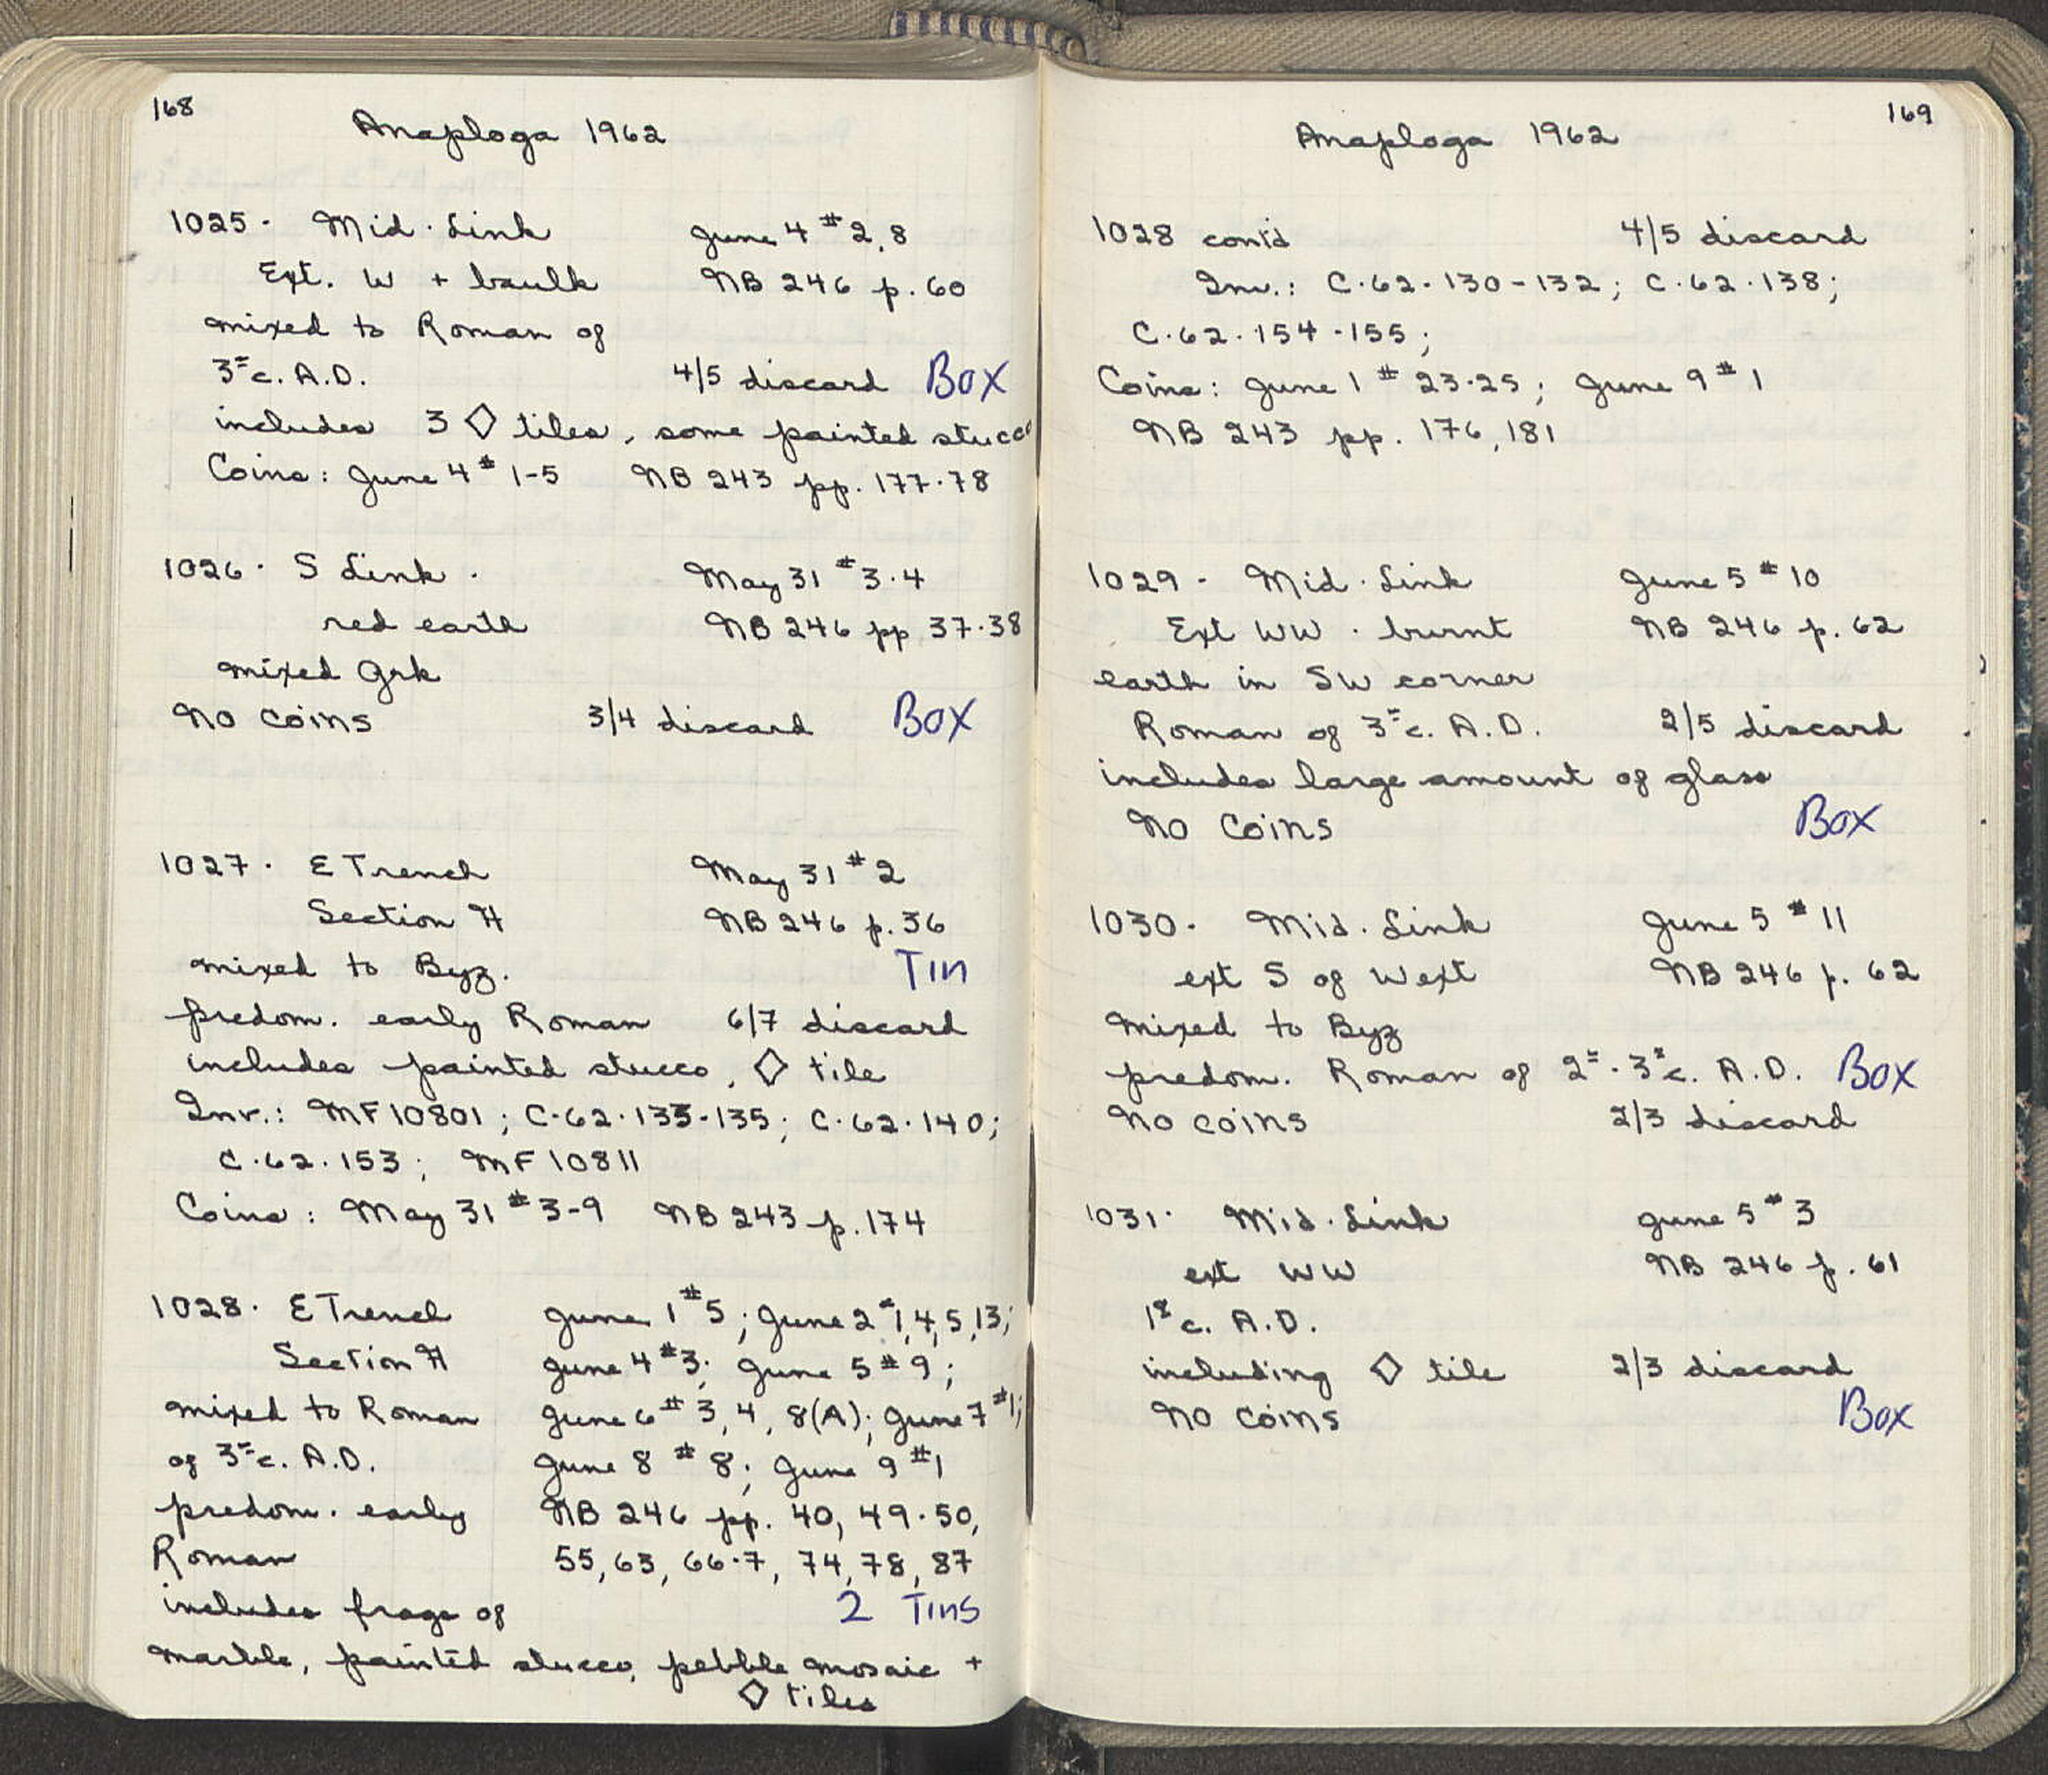 168
Anaploga 1962
1025. Mid. Link June 4 # 2, 8
Ext. W + baulk NB 246 p. 60
mixed to Roman of
3= c. A.D. 4/5 discard Box
includes 3 ◇ tiles, some painted stucco
Coins: June 4 # 1-5 NB 243 pp. 177-78
1026. S Link. May 31 # 3-4
red earth NB 246 pp 37-38
mixed Grk
No coins 3/4 discard Box
1027. E Trench May 31 # 2
Section H NB 246 p. 36
mixed to Byz. Tin
predom. early Roman 6/7 discard
includes painted stucco, ◇ tile
Inv.: MF 10801; C-62-133-135; C-62-140;
C-62-153; MF 10811
Coins: May 31 # 3-9 NB 243 p. 174
1028. E Trench June 1 # 5; June 2 # 1, 4, 5, 13;
Section H June 4 # 3; June 5 # 9;
mixed to Roman June 6 # 3, 4, 8(A); June 7 # 1;
of 3= c. A.D. June 8 # 8; June 9 # 1
predom. early NB 246 pp. 40, 49-50,
Roman 55, 63, 66-7, 74, 78, 87
includes frags of 2 Tins
marble, painted stucco, pebble mosaic +
◇ tiles
169
Anaploga 1962
1028 cont'd 4/5 discard
Inv.: C-62-130-132; C-62-138;
C-62-154-155;
Coins: June 1 # 23-25; June 9 # 1
NB 243 pp. 176, 181
1029. Mid. Link June 5 # 10
Ext WW. burnt NB 246 p. 62
earth in SW corner
Roman of 3= c. A.D. 2/5 discard
includes large amount of glass
No coins Box
1030. Mid. Link June 5 # 11
ext S of W ext NB 246 p. 62
Mixed to Byz
predom. Roman of 2= - 3= c. A.D. Box
No coins 2/3 discard
1031. Mid. Link June 5 # 3
ext WW NB 246 p. 61
1st c. A.D.
including ◇ tile 2/3 discard
No coins Box